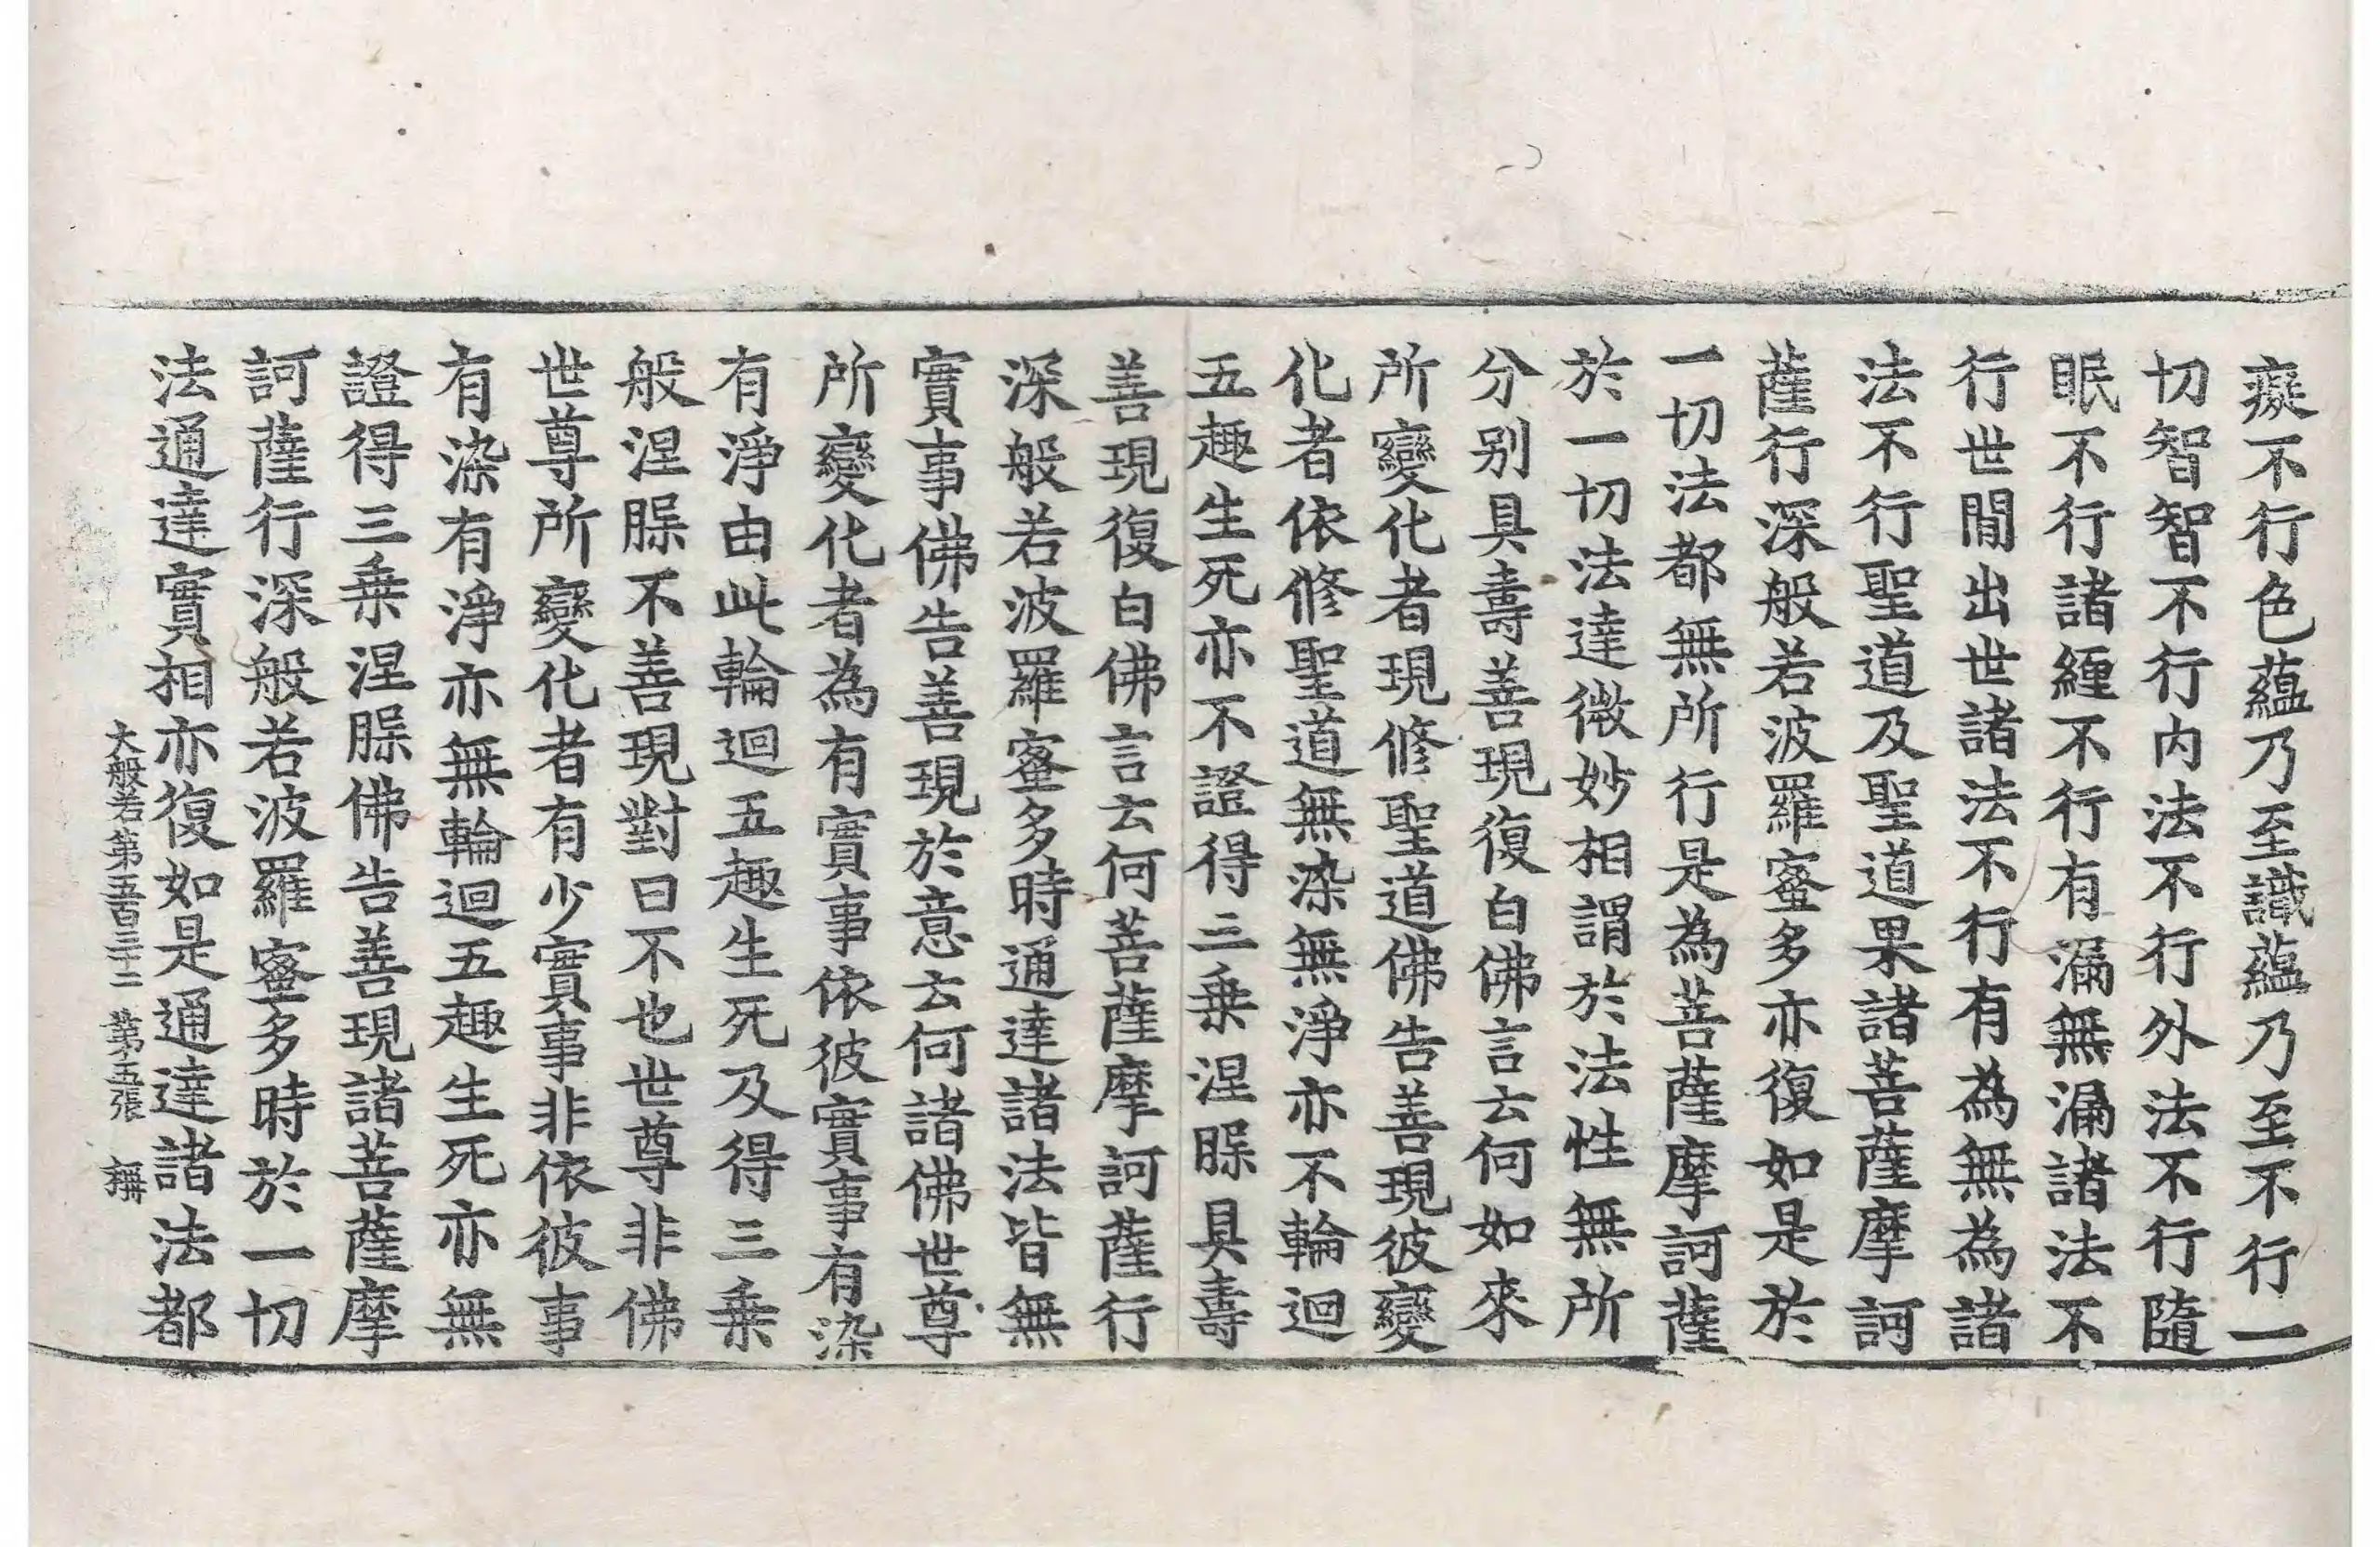 癡不行色蘊乃至識蘊乃至不行一
切智智不行内法不行外法不行隨
眠不行諸纏不行有漏無漏諸法不
行世間出世諸法不行有為無為諸
法不行聖道及聖道果諸菩薩摩訶
薩行深般若波羅蜜多亦復如是於
一切法都無所行是為菩薩摩訶薩
於一切法達微妙相謂於法性無所
分别具壽善現復白佛言云何如來
所變化者現修聖道佛告善現彼變
化者依修聖道無染無淨亦不輪迴
五趣生死亦不證得三乗涅槃具壽
善現復白佛言云何菩薩摩訶薩行
深般若波羅蜜多時通達諸法皆無
實事佛告善現於意云何諸佛世尊
所變化者為有實事依彼實事有染
有淨由此輪迴五趣生死及得三乗
般涅槃不善現對曰不也世尊非佛
世尊所變化者有少實事非依彼事
有染有淨亦無輪迴五趣生死亦無
證得三乗涅槃佛告善現諸菩薩摩
訶薩行深般若波羅蜜多時於一切
法通達實相亦復如是通達諸法都
大般若第五百三十二 第十五張 稱